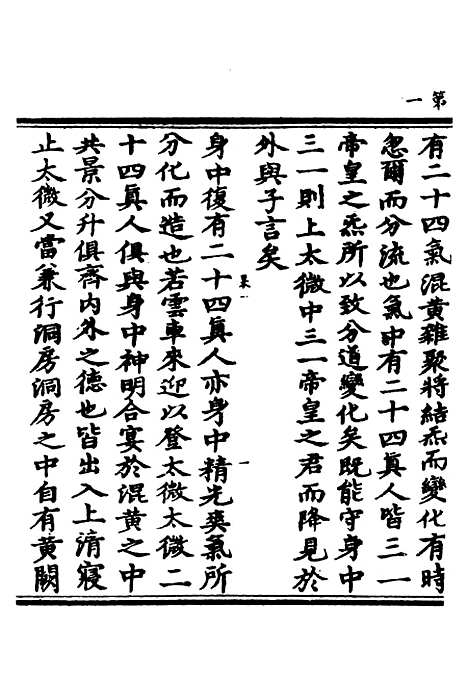 第一
有二十四氣混黃雜聚將結炁而變化有時
忽爾而分流也氣中有二十四真人皆三一
帝皇之炁所以致分道變化矣既能守身中
三一則上太微中三一帝皇之君而降見於
外與子言矣
一
身中復有二十四真人亦身中精光爽氣所
分化而造也若雲車來迎以登太微太微二
十四真人俱與身中神明合宴於混黃之中
共景分升俱齊內外之德也皆出入上清寢
止太微又當兼行洞房洞房之中自有黃闕